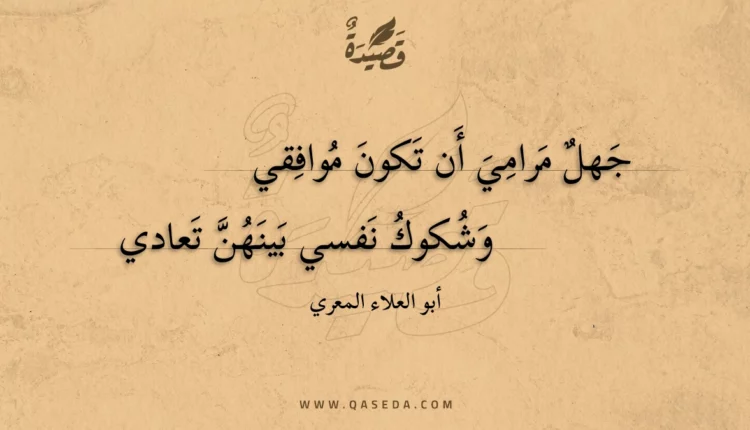 قَصِيْدَةٌ
جَهلٌ مَرامِيَ أَن تَكونَ مُوافِقي
وَشُكوكُ نَفسي بَينَهُنَّ تَعادي
أبو العلاء المعري
WWW.QASEDA.COM